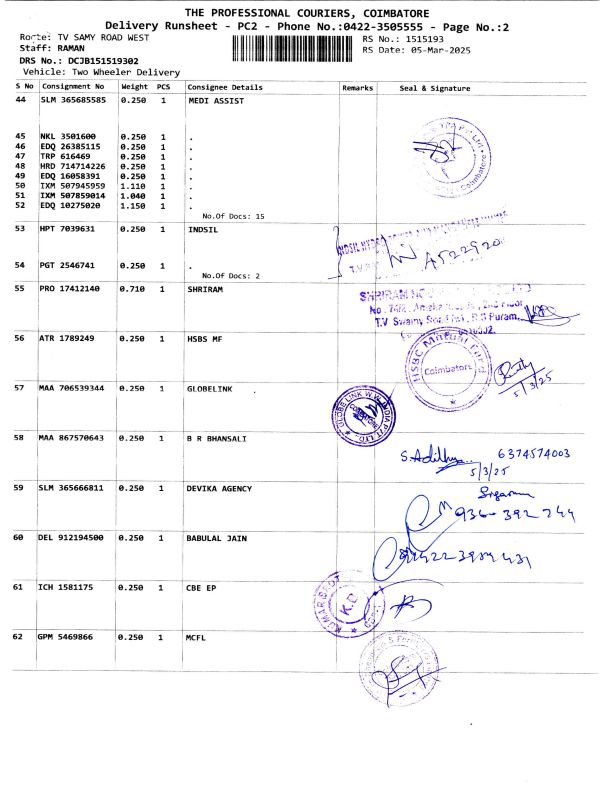 THE PROFESSIONAL COURIERS, COIMBATORE
Delivery Runsheet - PC2 - Phone No.:0422-3505555 - Page No.:2
Route: TV SAMY ROAD WEST
RS No.: 1515193
Staff: RAMAN
RS Date: 05-Mar-2025
DRS No.: DCJB151519302
Vehicle: Two Wheeler Delivery
S No Consignment No Weight PCS Consignee Details Remarks Seal & Signature
44 SLM 365685585 0.250 1 MEDI ASSIST
45 NKL 3501600 0.250 1 .
46 EDQ 26385115 0.250 1 .
47 TRP 616469 0.250 1 .
48 HRD 714714226 0.250 1 .
49 EDQ 16058391 0.250 1 .
50 IXM 507945959 1.110 1 .
51 IXM 507859014 1.040 1 .
52 EDQ 10275020 1.150 1 .
No.Of Docs: 15
Coimbatore
53 HPT 7039631 0.250 1 INDSIL
INDSIL HYDRO POWER
54 PGT 2546741 0.250 1 .
No.Of Docs: 2
55 PRO 17412140 0.710 1 SHRIRAM
SHRIRAM
T.V Swamy Road R.S Puram,
56 ATR 1789249 0.250 1 HSBS MF
HSBC Mutual Fund
Coimbatore
5/3/25
57 MAA 706539344 0.250 1 GLOBELINK
GLOBE LINK W.W. INDIA PVT LTD.
COIMBATORE
58 MAA 867570643 0.250 1 B R BHANSALI
6374574003
5/3/25
59 SLM 365666811 0.250 1 DEVIKA AGENCY
60 DEL 912194500 0.250 1 BABULAL JAIN
61 ICH 1581175 0.250 1 CBE EP
K.B
62 GPM 5469866 0.250 1 MCFL